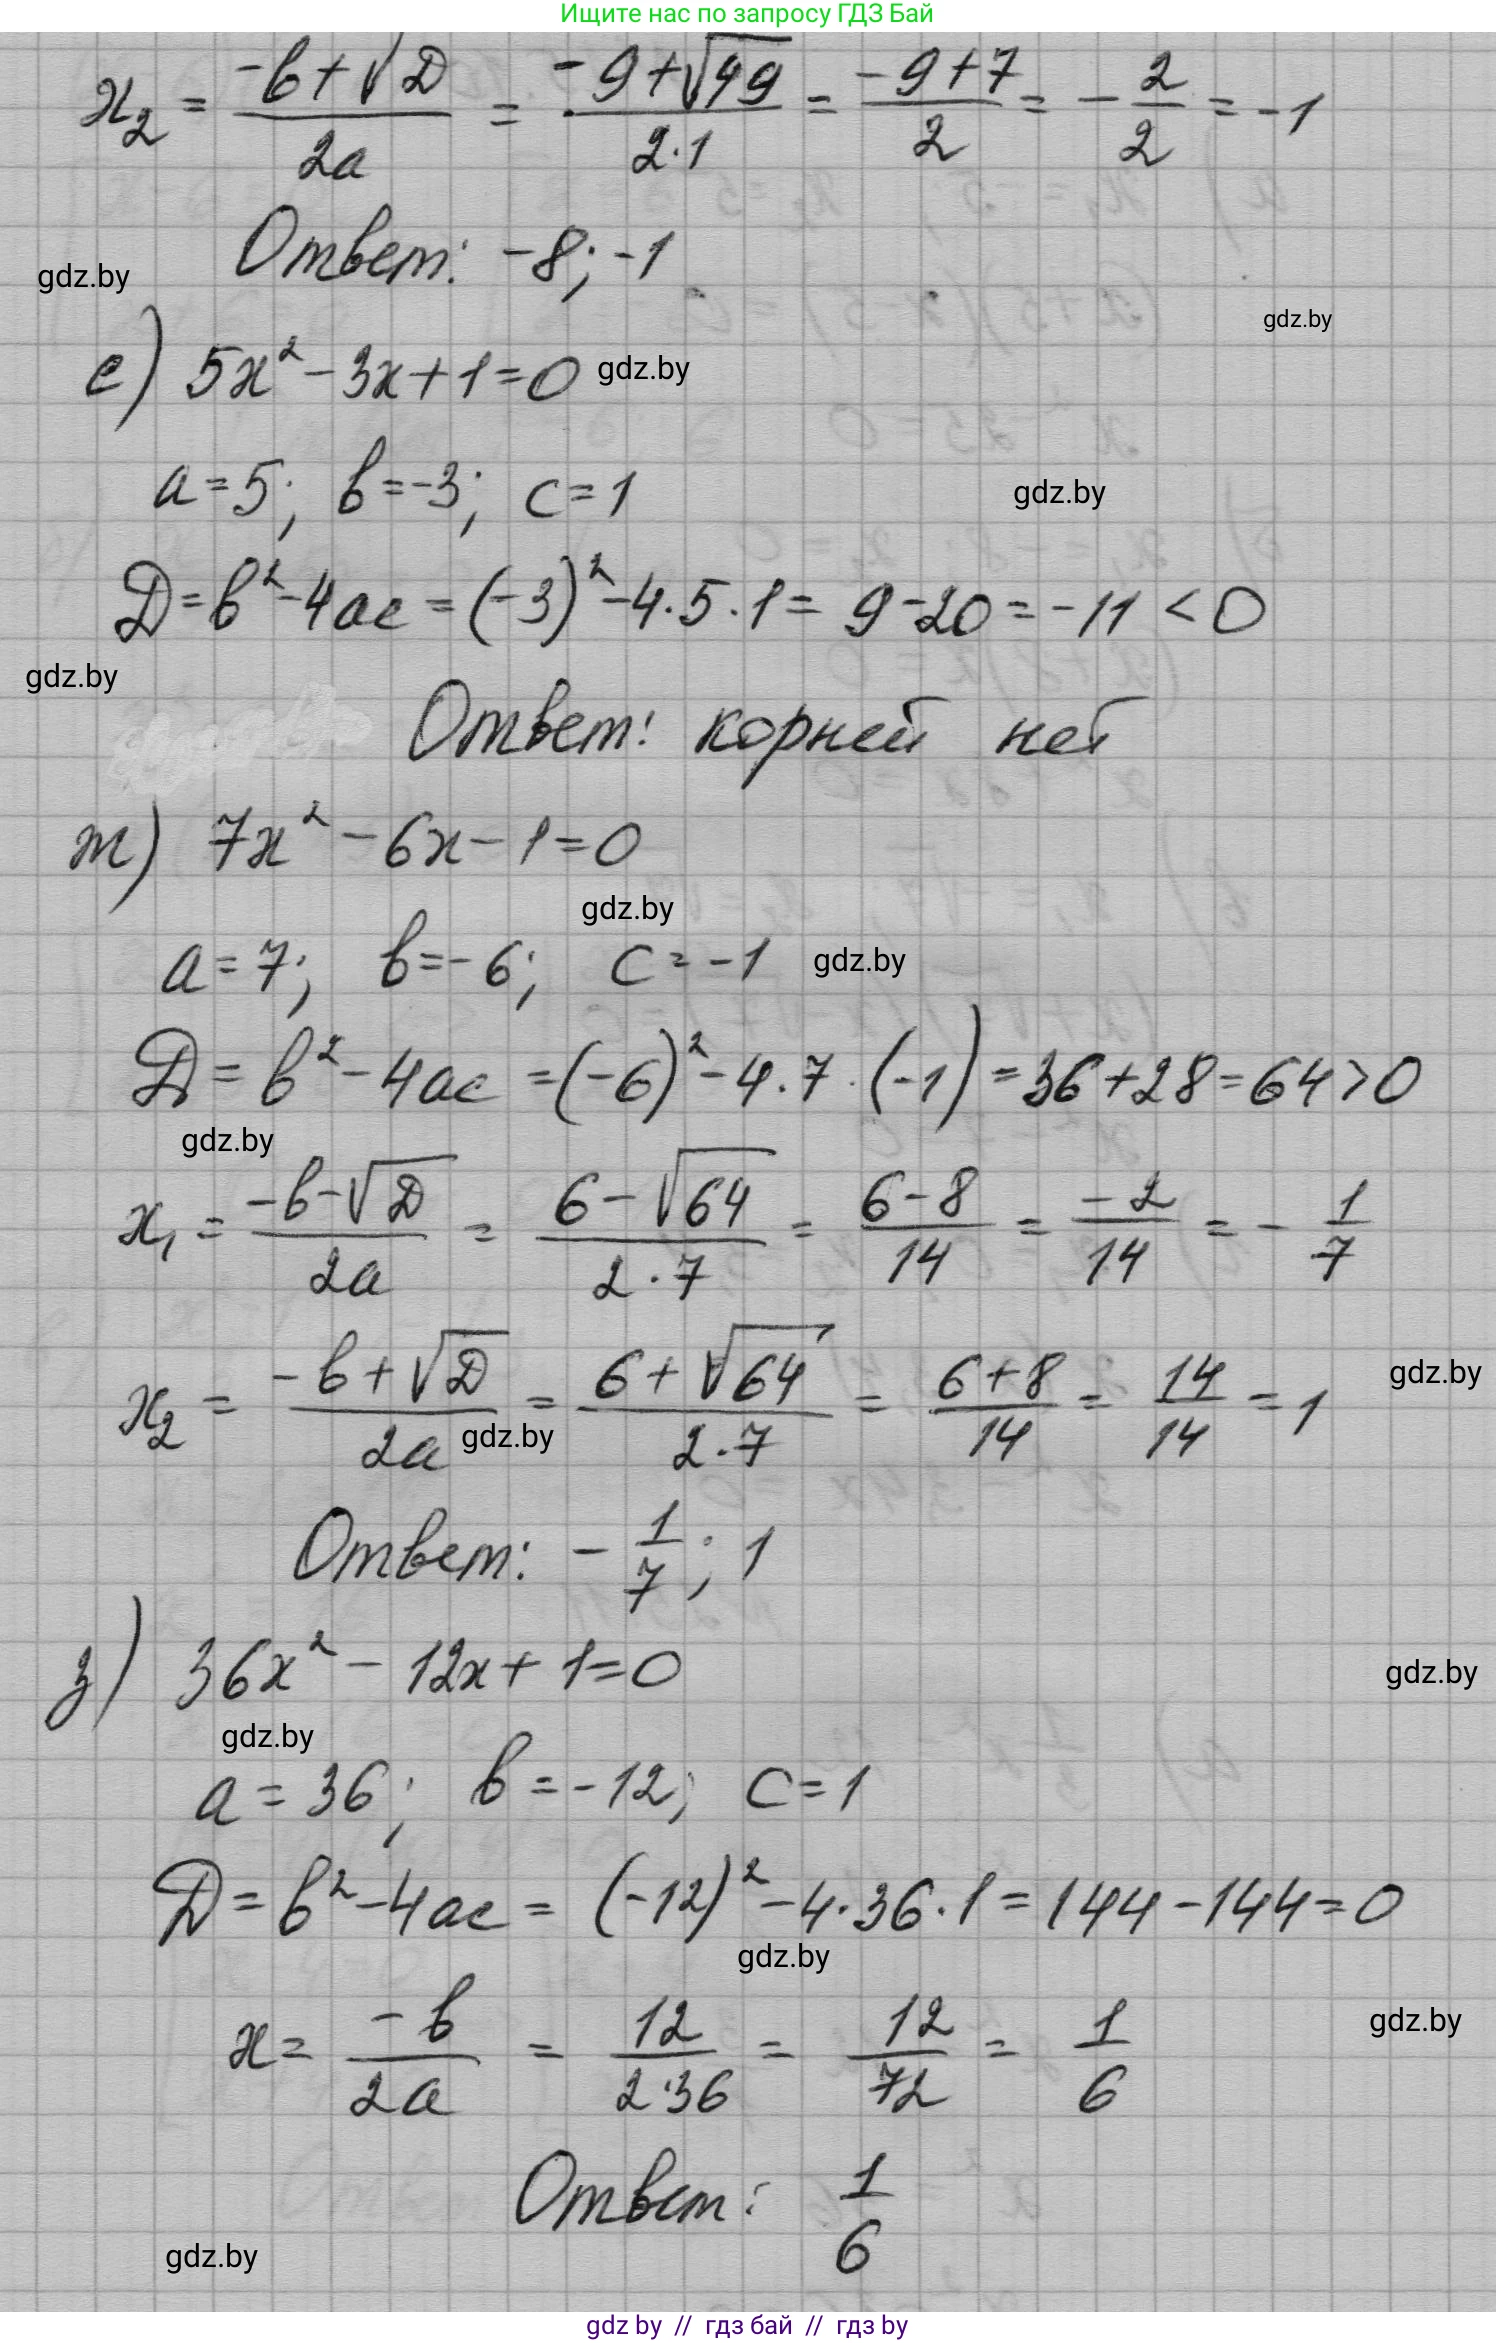 Ищите нас по запросу ГДЗ Бай
x₂ = (-b+√D)/(2a) = (-9+√49)/(2·1) = (-9+7)/2 = -2/2 = -1
Ответ: -8; -1
gdz.by
gdz.by
е) 5x² - 3x + 1 = 0 gdz.by
a = 5; b = -3; c = 1
gdz.by
D = b² - 4ac = (-3)² - 4·5·1 = 9 - 20 = -11 < 0
gdz.by
Ответ: корней нет
ж) 7x² - 6x - 1 = 0
gdz.by
a = 7; b = -6; c = -1 gdz.by
D = b² - 4ac = (-6)² - 4·7·(-1) = 36 + 28 = 64 > 0
gdz.by
x₁ = (-b-√D)/(2a) = (6-√64)/(2·7) = (6-8)/14 = -2/14 = -1/7
x₂ = (-b+√D)/(2a) = (6+√64)/(2·7) = (6+8)/14 = 14/14 = 1
gdz.by
gdz.by
Ответ: -1/7; 1
з) 36x² - 12x + 1 = 0
gdz.by
gdz.by
a = 36; b = -12; c = 1
D = b² - 4ac = (-12)² - 4·36·1 = 144 - 144 = 0
gdz.by
x = -b/(2a) = 12/(2·36) = 12/72 = 1/6
gdz.by
Ответ: 1/6
gdz.by
gdz by // гдз бай // гдз by